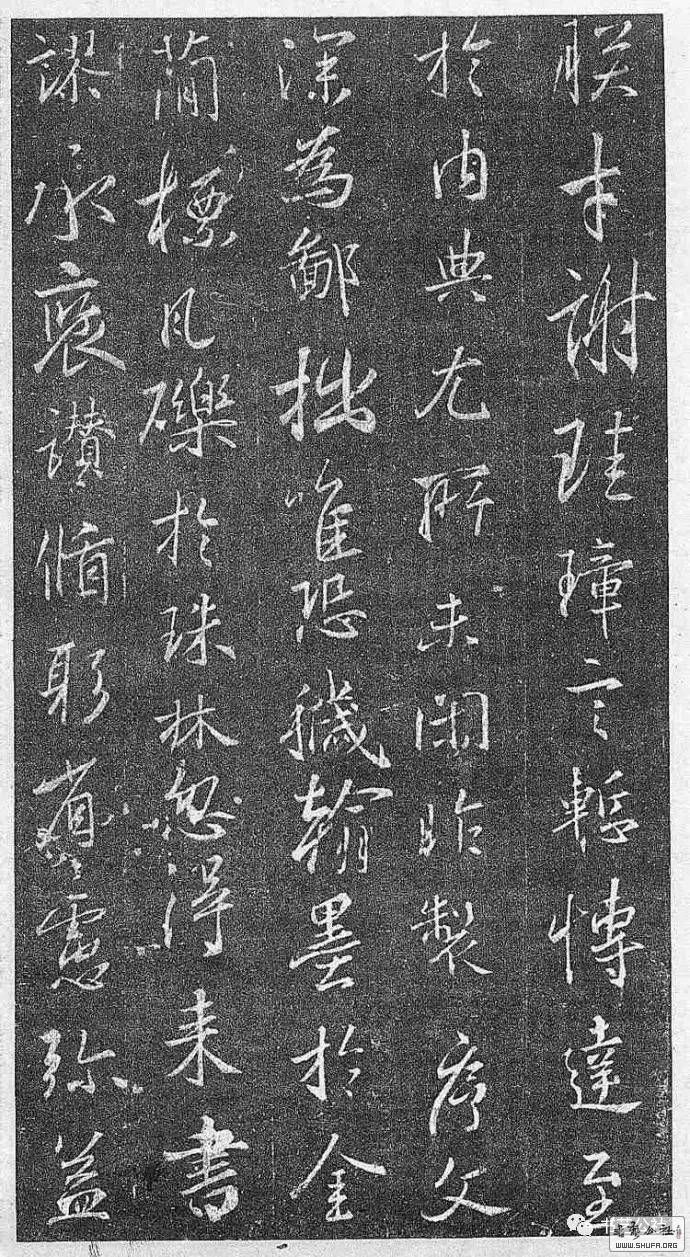 朕才謝珪璋言慙博達至
於内典尤所未閑昨製序文
深為鄙拙唯恐穢翰墨於金
簡標瓦礫於珠林忽得来書
謬承褒讚循躬省慮弥益
WWW.SHUFA.ORG